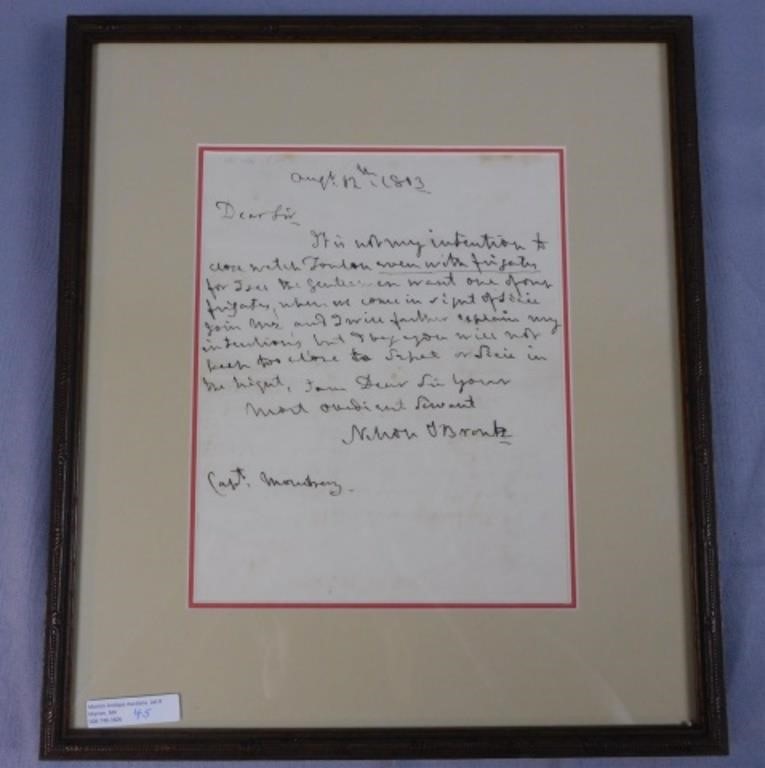 Augt. 12th. 1803
Dear Sir
It is not my intention to
close watch Toulon even with frigates
for I see the Gentlemen want one of our
frigates, when we come in sight of Sicie
Join me, and I will farther explain my
intentions, but I beg you will not
keep too close to Sepet or Sicie in
the Night, I am Dear Sir Your
most obedient Servant
Nelson & Bronte
Capt.
Marion Antique Auctions
Marion, MA
45